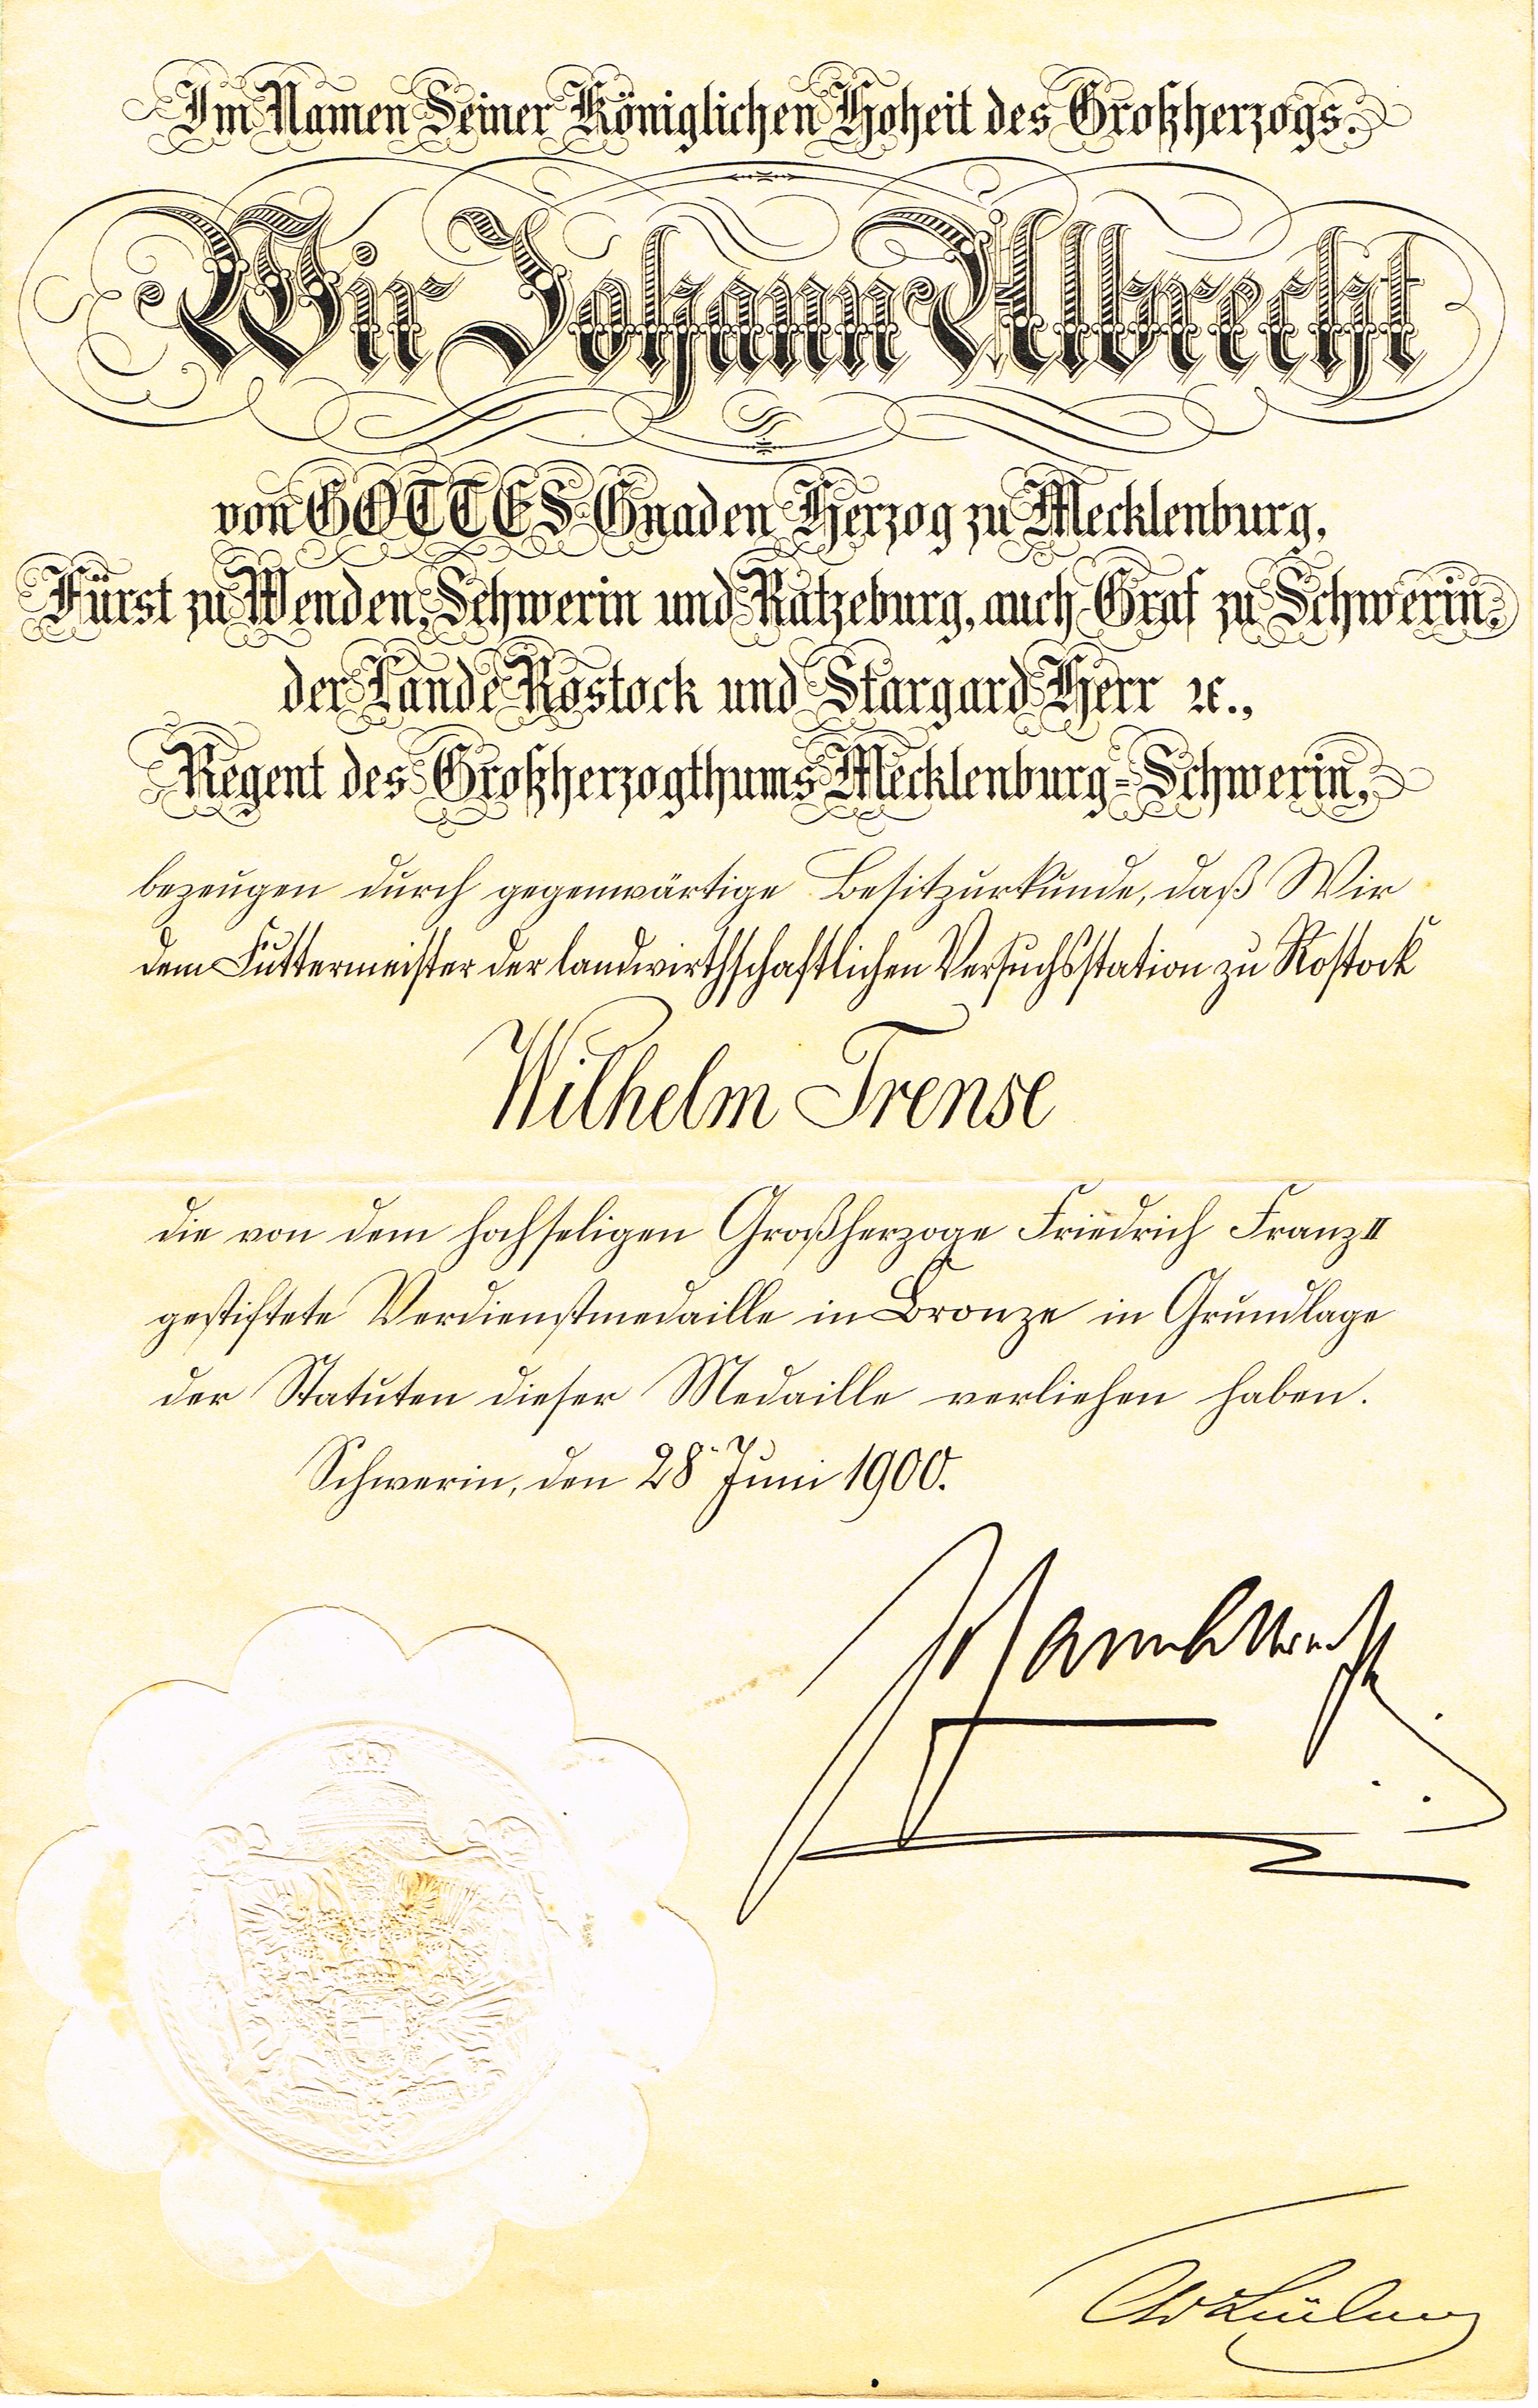 Im Namen Seiner Königlichen Hoheit des Großherzogs.
Wir Johann Albrecht
von GOTTES Gnaden Herzog zu Mecklenburg,
Fürst zu Wenden, Schwerin und Ratzeburg, auch Graf zu Schwerin,
der Lande Rostock und Stargard Herr ꝛc.,
Regent des Großherzogthums Mecklenburg-Schwerin,
bezeugen durch gegenwärtige Besitzurkunde, daß Wir
dem Futtermeister der landwirthschaftlichen Versuchsstation zu Rostock
Wilhelm Trense
die von dem hochseligen Großherzoge Friedrich Franz II
gestiftete Verdienstmedaille in Bronze in Grundlage
der Statuten dieser Medaille verliehen haben.
Schwerin, den 28. Juni 1900.
Johann Albrecht